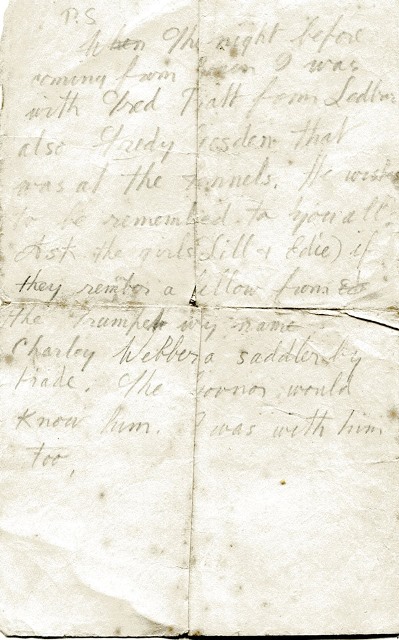 P.S
When the night before
coming from I was
with Fred Pratt from
also Fredy that
was at the tunnels. He
to be remembered to you all.
Ask the girls (Lill & Edie) if
they rember a fellow from
the Trumpet by name
Charley Webber a saddler by
trade. The Govnor would
know him. I was with him
too,